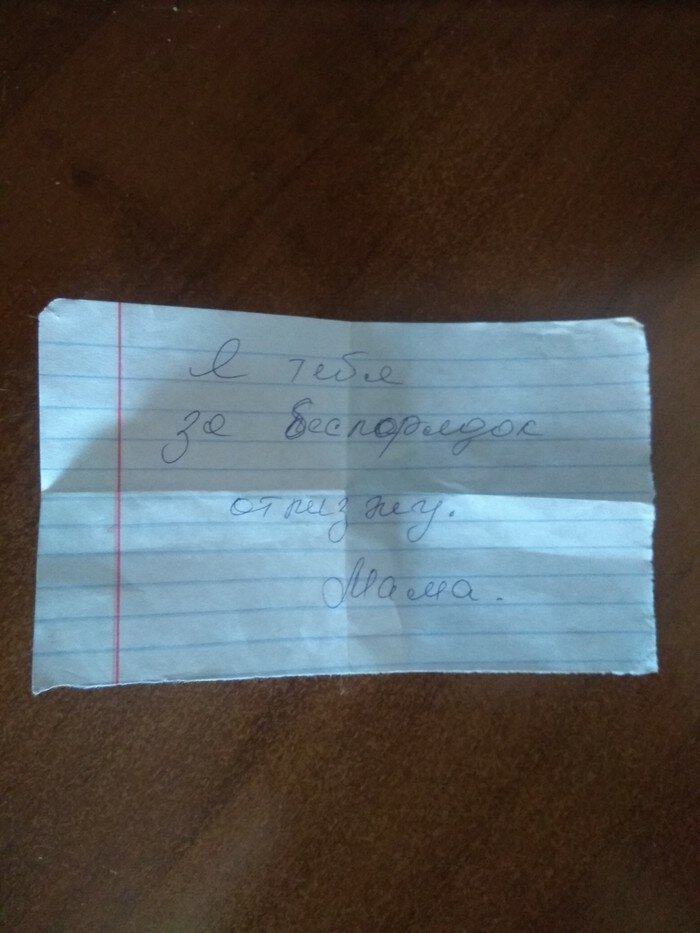 Я тебя
за беспорядок
отпизжу.
Мама.